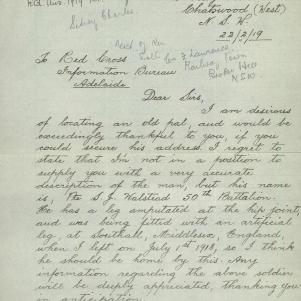 Chatswood (West)
N. S. W.
22/2/19
Sidney Charles.
To Red Cross
Information Bureau
Adelaide
Lawrence
Railway Town
Broken Hill
N.S.W
Dear Sirs,
I am desirous
of locating an old pal, and would be
exceedingly thankful to you, if you
could secure his address. I regret to
state that I'm not in a position to
supply you with a very accurate
description of the man, but his name
is, Pte S. J. Walstead 50th Battalion.
He has a leg amputated at the hip joint,
and was being fitted with an artificial
leg at Southall, Middlesex, England,
when I left on July 1st 1918, so I think
he should be home by this. Any
information regarding the above soldier
will be deeply appreciated, thanking you
in anticipation.